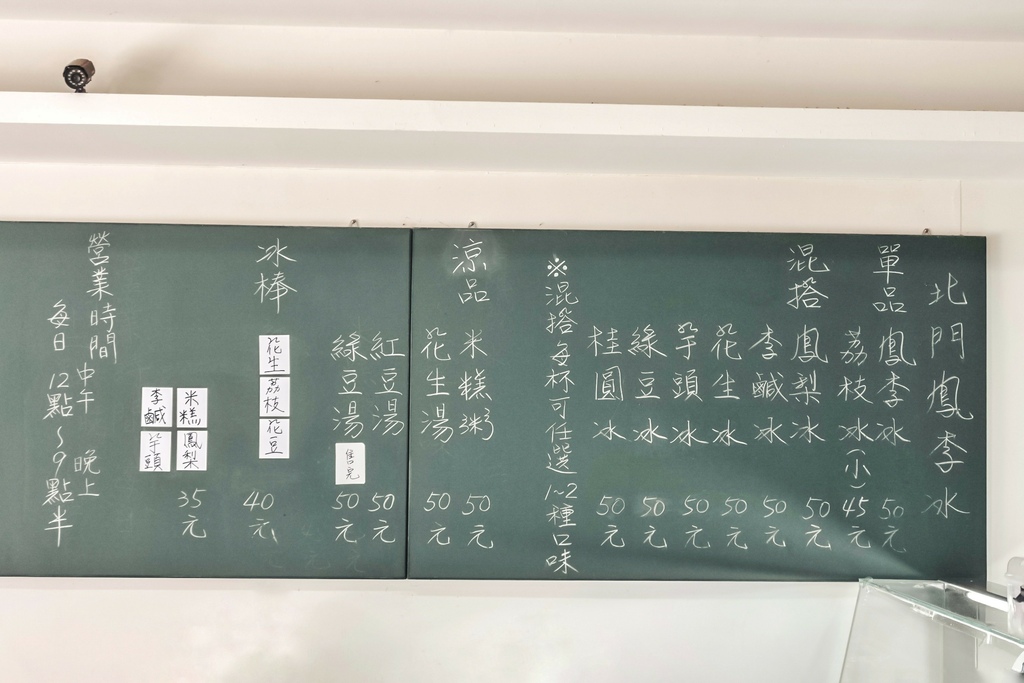 北門鳳李冰
單品
鳳李冰 50元
荔枝冰(小) 45元
混搭
鳳梨冰 50元
李鹹冰 50元
花生冰 50元
芋頭冰 50元
綠豆冰 50元
桂圓冰 50元
※混搭每杯可任選1~2種口味
涼品
米糕粥 50元
花生湯 50元
紅豆湯 50元
綠豆湯 售完 50元
冰棒
花生
荔枝
花豆
40元
米糕
鳳梨
李鹹
芋頭
35元
營業時間
中午 晚上
每日12點~9點半